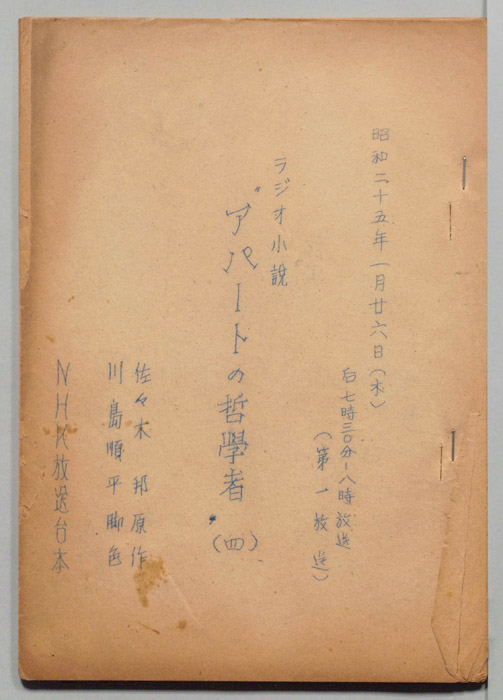 昭和二十五年一月廿六日(木)
后七時三〇分－八時放送
(第一放送)
ラジオ小説
"アパートの哲學者"(四)
佐々木邦原作
川島順平脚色
NHK放送台本